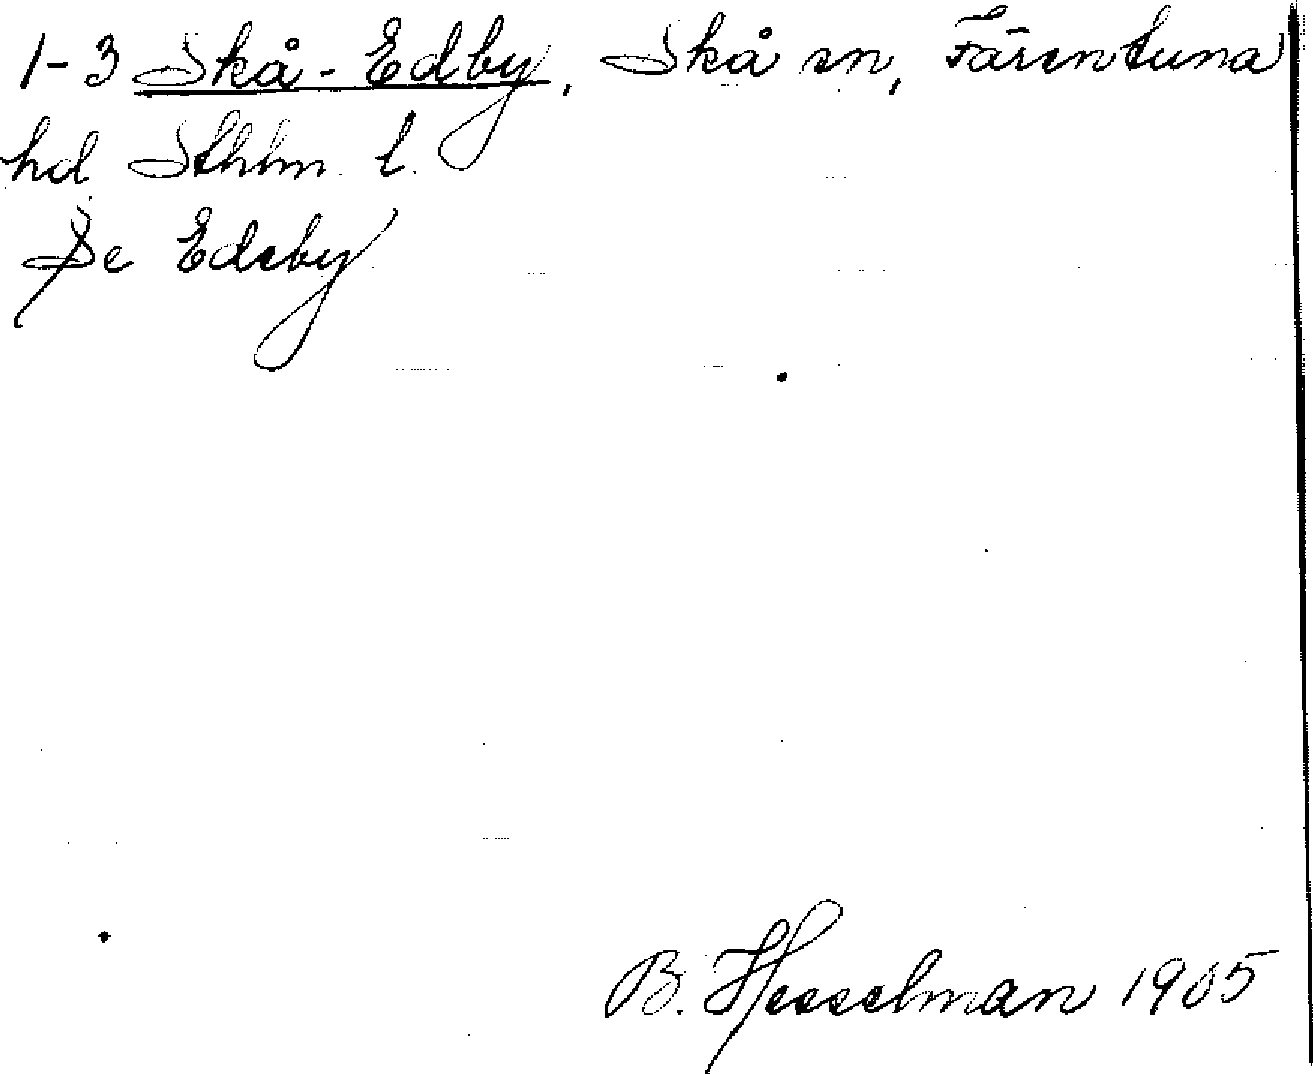 1-3 Skå-Edby, Skå sn, Färentuna
hd Sthlm l.
Se Edeby
B. Hesselman 1905